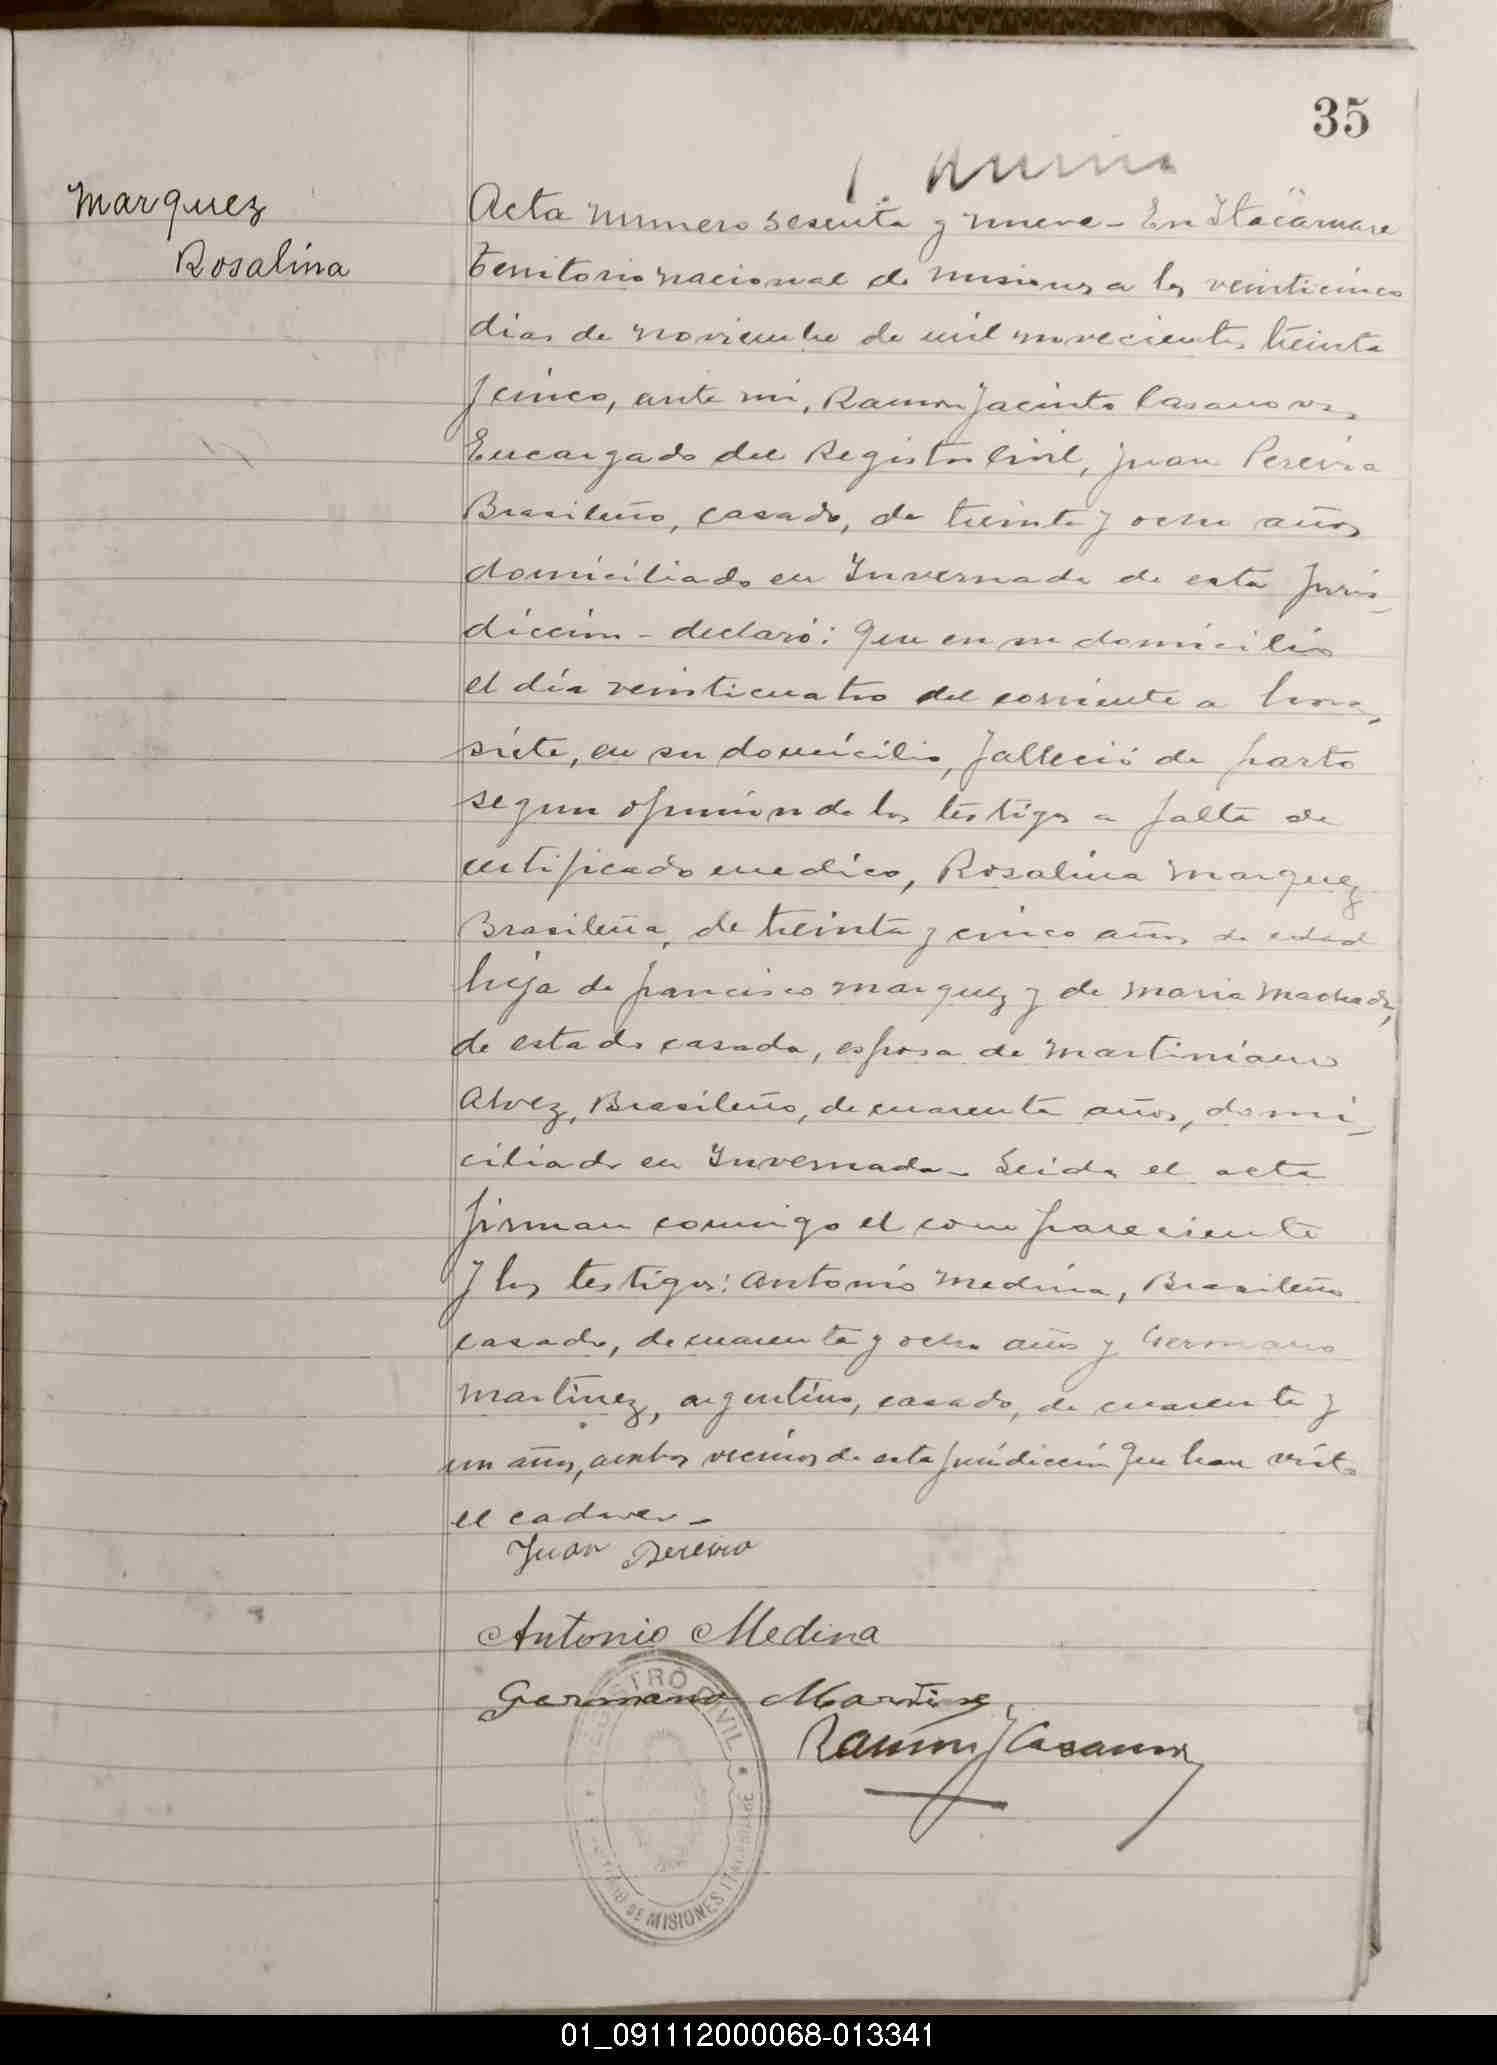 35
Marquez
Rosalina
Acta numero sesenta y nueve - En Itacaruare
Territorio nacional de Misiones a los veinticinco
dias de noviembre de mil novecientos treinta
y cinco, ante mi, Ramon Jacinto Casanova,
Encargado del Registro Civil, Juan Pereira
Brasileño, casado, de treinta y ocho años
domiciliado en Invernada de esta juris-
diccion - declaró: Que en su domicilio
el día veinticuatro del corriente a horas
siete, en su domicilio, falleció de parto
segun opinion de los testigos a falta de
certificado medico, Rosalina Marquez
Brasileña, de treinta y cinco años de edad
hija de Francisco Marquez y de Maria Machado,
de estado casada, esposa de Martiniano
Alvez, Brasileño, de cuarenta años, domi-
ciliado en Invernada - Leida el acta
firman conmigo el compareciente
y los testigos: Antonio Medina, Brasileño
casado, de cuarenta y ocho años y Germano
Martinez, argentino, casado, de cuarenta y
un años, ambos vecinos de esta juridicción que han visto
el cadaver -
Juan Pereira
Antonio Medina
Germano Martinez
Ramon J Casanova
REGISTRO CIVIL
DE MISIONES ITACARUARE
01_091112000068-013341